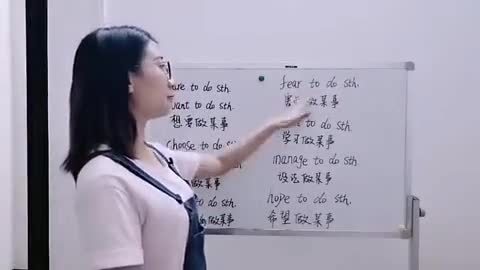 to do sth.
want to do sth.
想要做某事
choose to do sth.
做某事
to do sth.
做某事
fear to do sth.
害 做某事
to do sth.
学习做某事
manage to do sth.
设法做某事
hope to do sth.
希望做某事